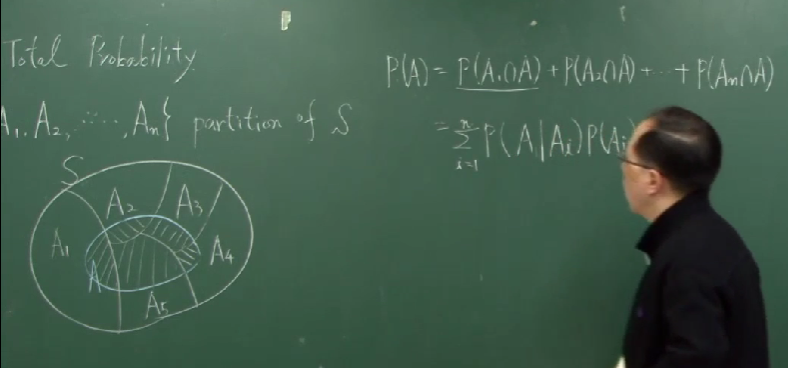 Total Probability
A₁, A₂, ⋯⋯, Aₙ} partition of S
S
A₂ A₃
A₁ A₄
A
A₅
P(A) = P(A₁∩A) + P(A₂∩A) + ⋯ + P(Aₙ∩A)
= ∑ᵢ₌₁ⁿ P(A|Aᵢ)P(Aᵢ